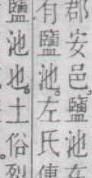 郡安邑鹽池在
有鹽池左氏傳
鹽池也土俗